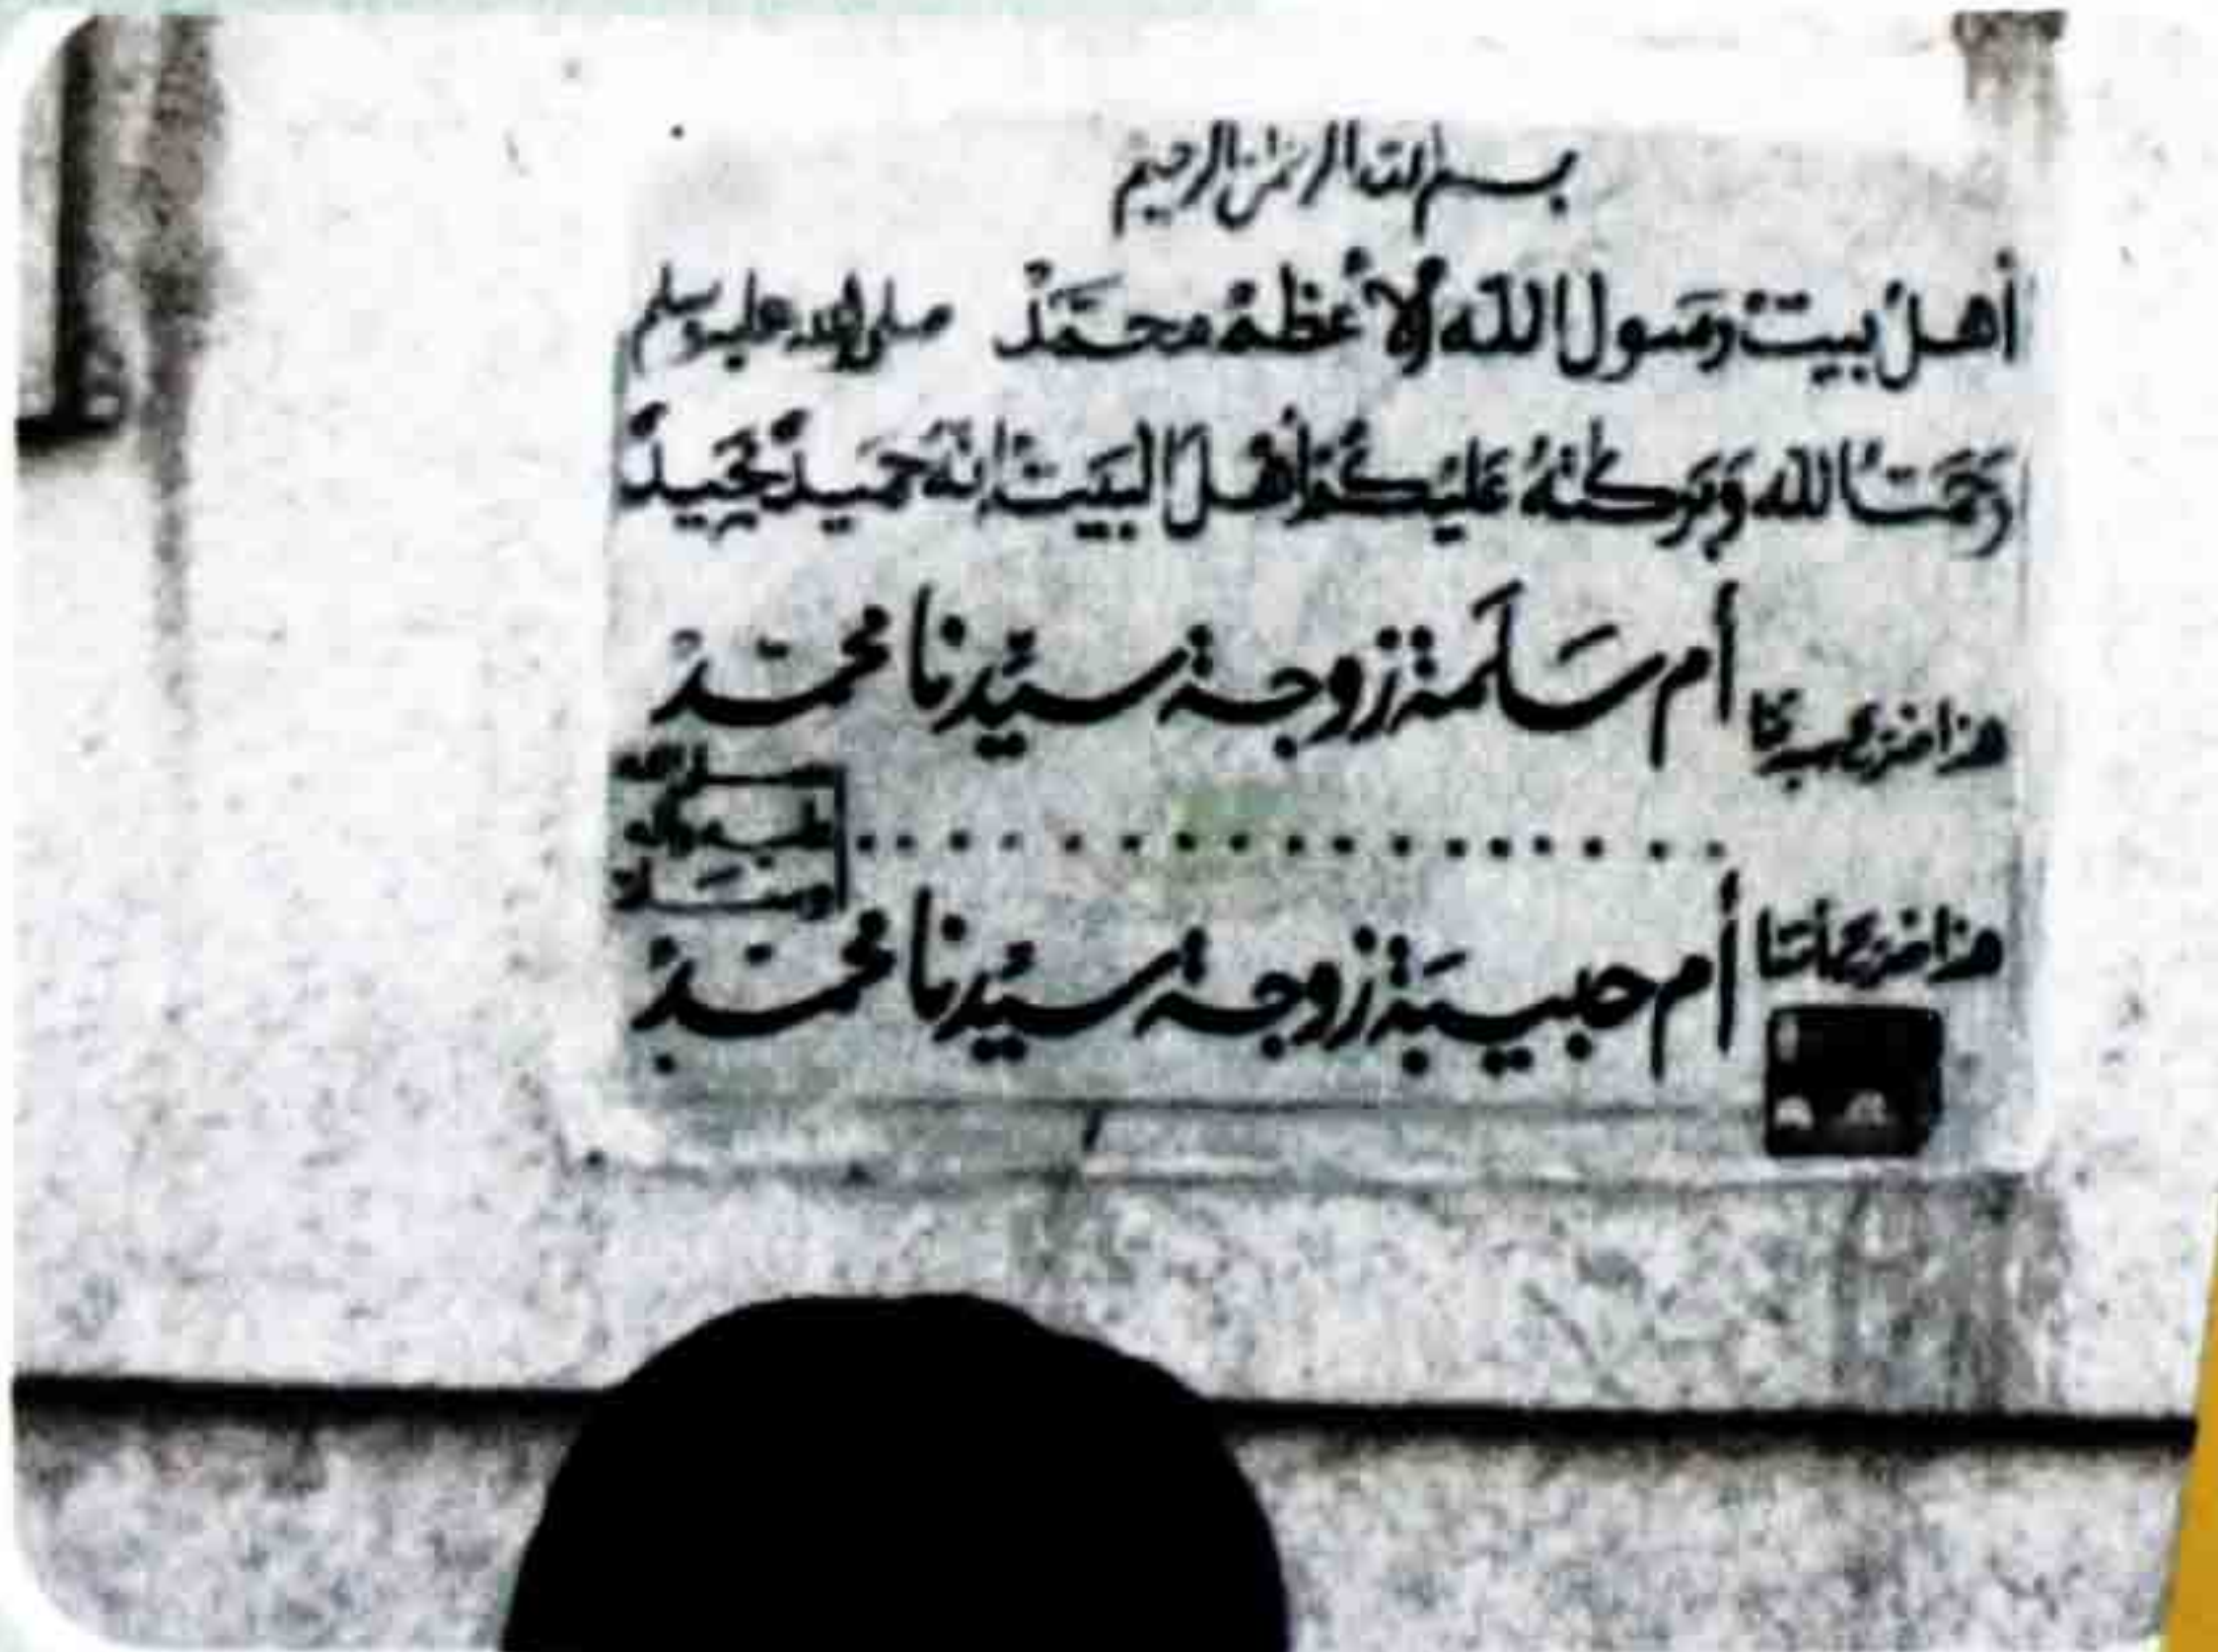 بسم الله الرحمن الرحيم
أهل بيت رسول الله الأعظم محمد صلى الله عليه وسلم
رحمت الله وبركته عليكم أهل البيت إنه حميد مجيد
أم سلمة زوجة سيدنا محمد
صلى الله
عليه وآله
وسلم
أم حبيبة زوجة سيدنا محمد